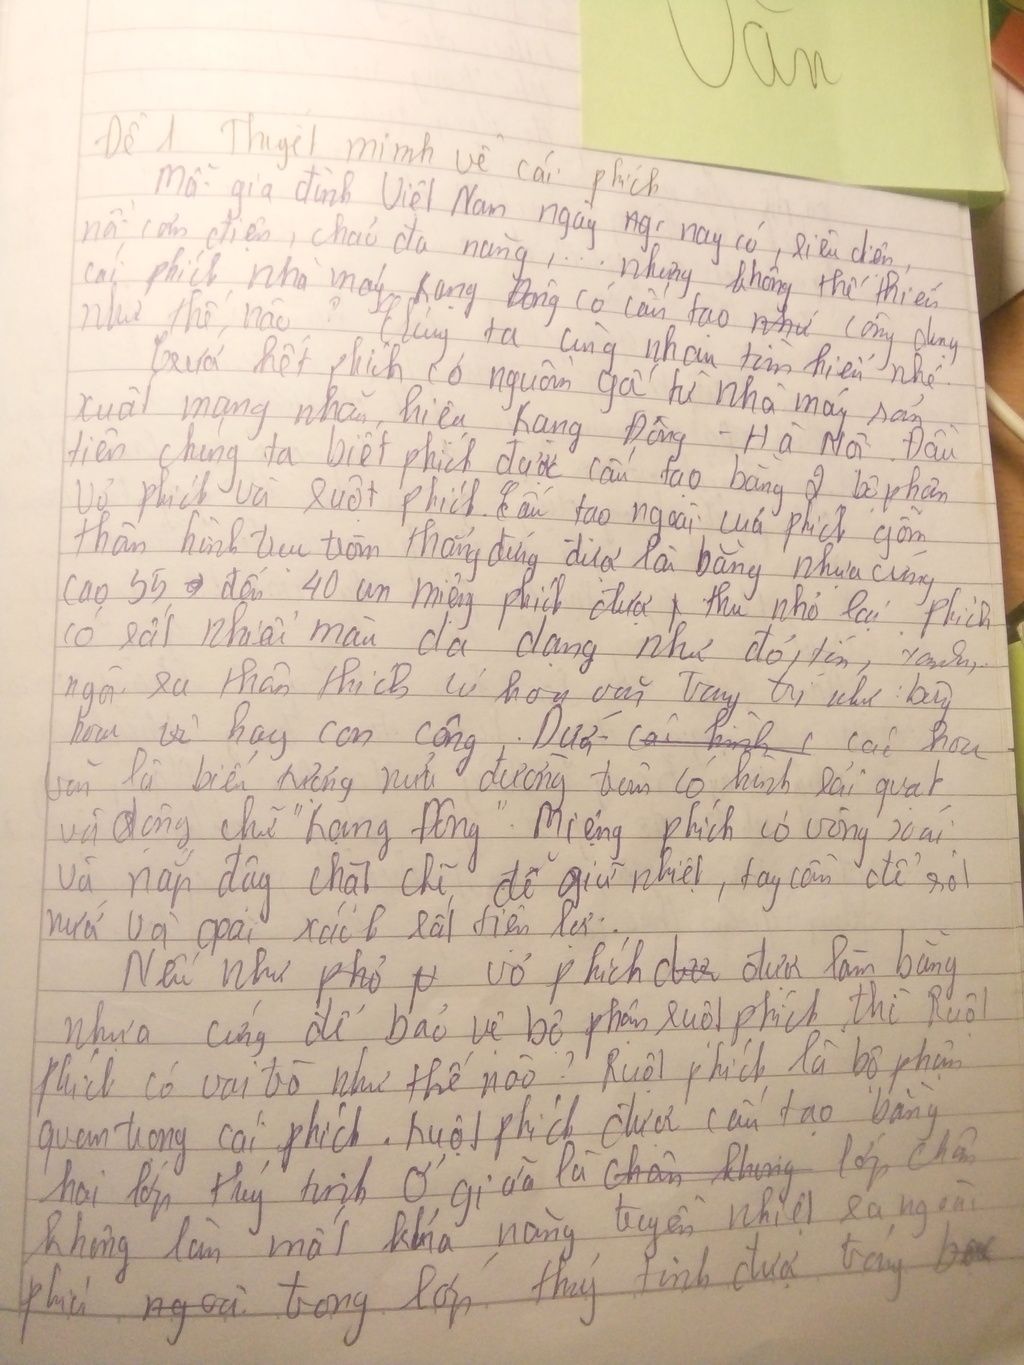 Văn
Đề 1 Thuyết minh về cái phích
Mỗi gia đình Việt Nam ngày nay có, siêu điện,
nồi cơm điện, chảo đa năng, ... nhưng không thể thiếu
cái phích nhà máy Rạng Đông có cấu tạo công dụng
như thế nào? Chúng ta cùng nhau tìm hiểu nhé.
Trước hết phích có nguồn gốc từ nhà máy sản
xuất mang nhãn hiệu Rạng Đông - Hà Nội. Đầu
tiên chúng ta biết phích được cấu tạo bằng 2 bộ phận
Vỏ phích và ruột phích. Cấu tạo ngoài của phích gồm
thân hình trụ tròn thẳng đứng được làm bằng nhựa cứng
cao 35 đến 40 cm miệng phích được thu nhỏ lại phích
có rất nhiều màu đa dạng như đỏ, tím, xanh,..
ngoài ra thân phích có hoa văn trang trí như: bông
hoa hay con công. Dưới cái hoa
văn là biểu tượng nửa đường tròn có hình cái quạt
và dòng chữ "Rạng Đông". Miệng phích có vòng xoáy
và nắp đậy chặt chẽ để giữ nhiệt, tay cầm để rót
nước và quai xách rất tiện lợi.
Nếu như vỏ phích được làm bằng
nhựa cứng để bảo vệ bộ phận ruột phích thì Ruột
phích có vai trò như thế nào? Ruột phích là bộ phận
quan trọng cái phích. Ruột phích được cấu tạo bằng
hai lớp thủy tinh Ở giữa là lớp chân
không làm mất khả năng truyền nhiệt ra ngoài
phía trong lớp thủy tinh được tráng